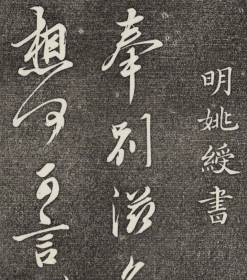 明姚綬書
奉別滋久
想可言